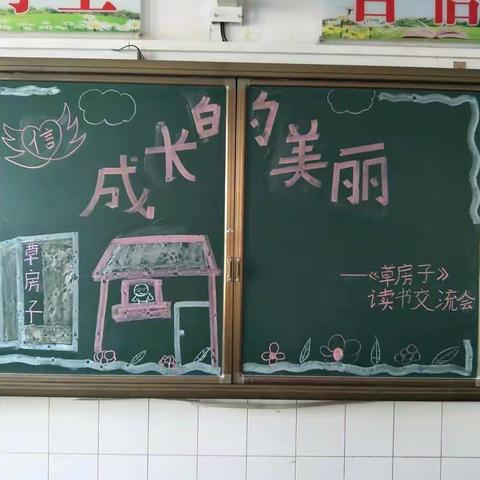 自信
信
成长的美丽
草房子
——《草房子》
读书交流会